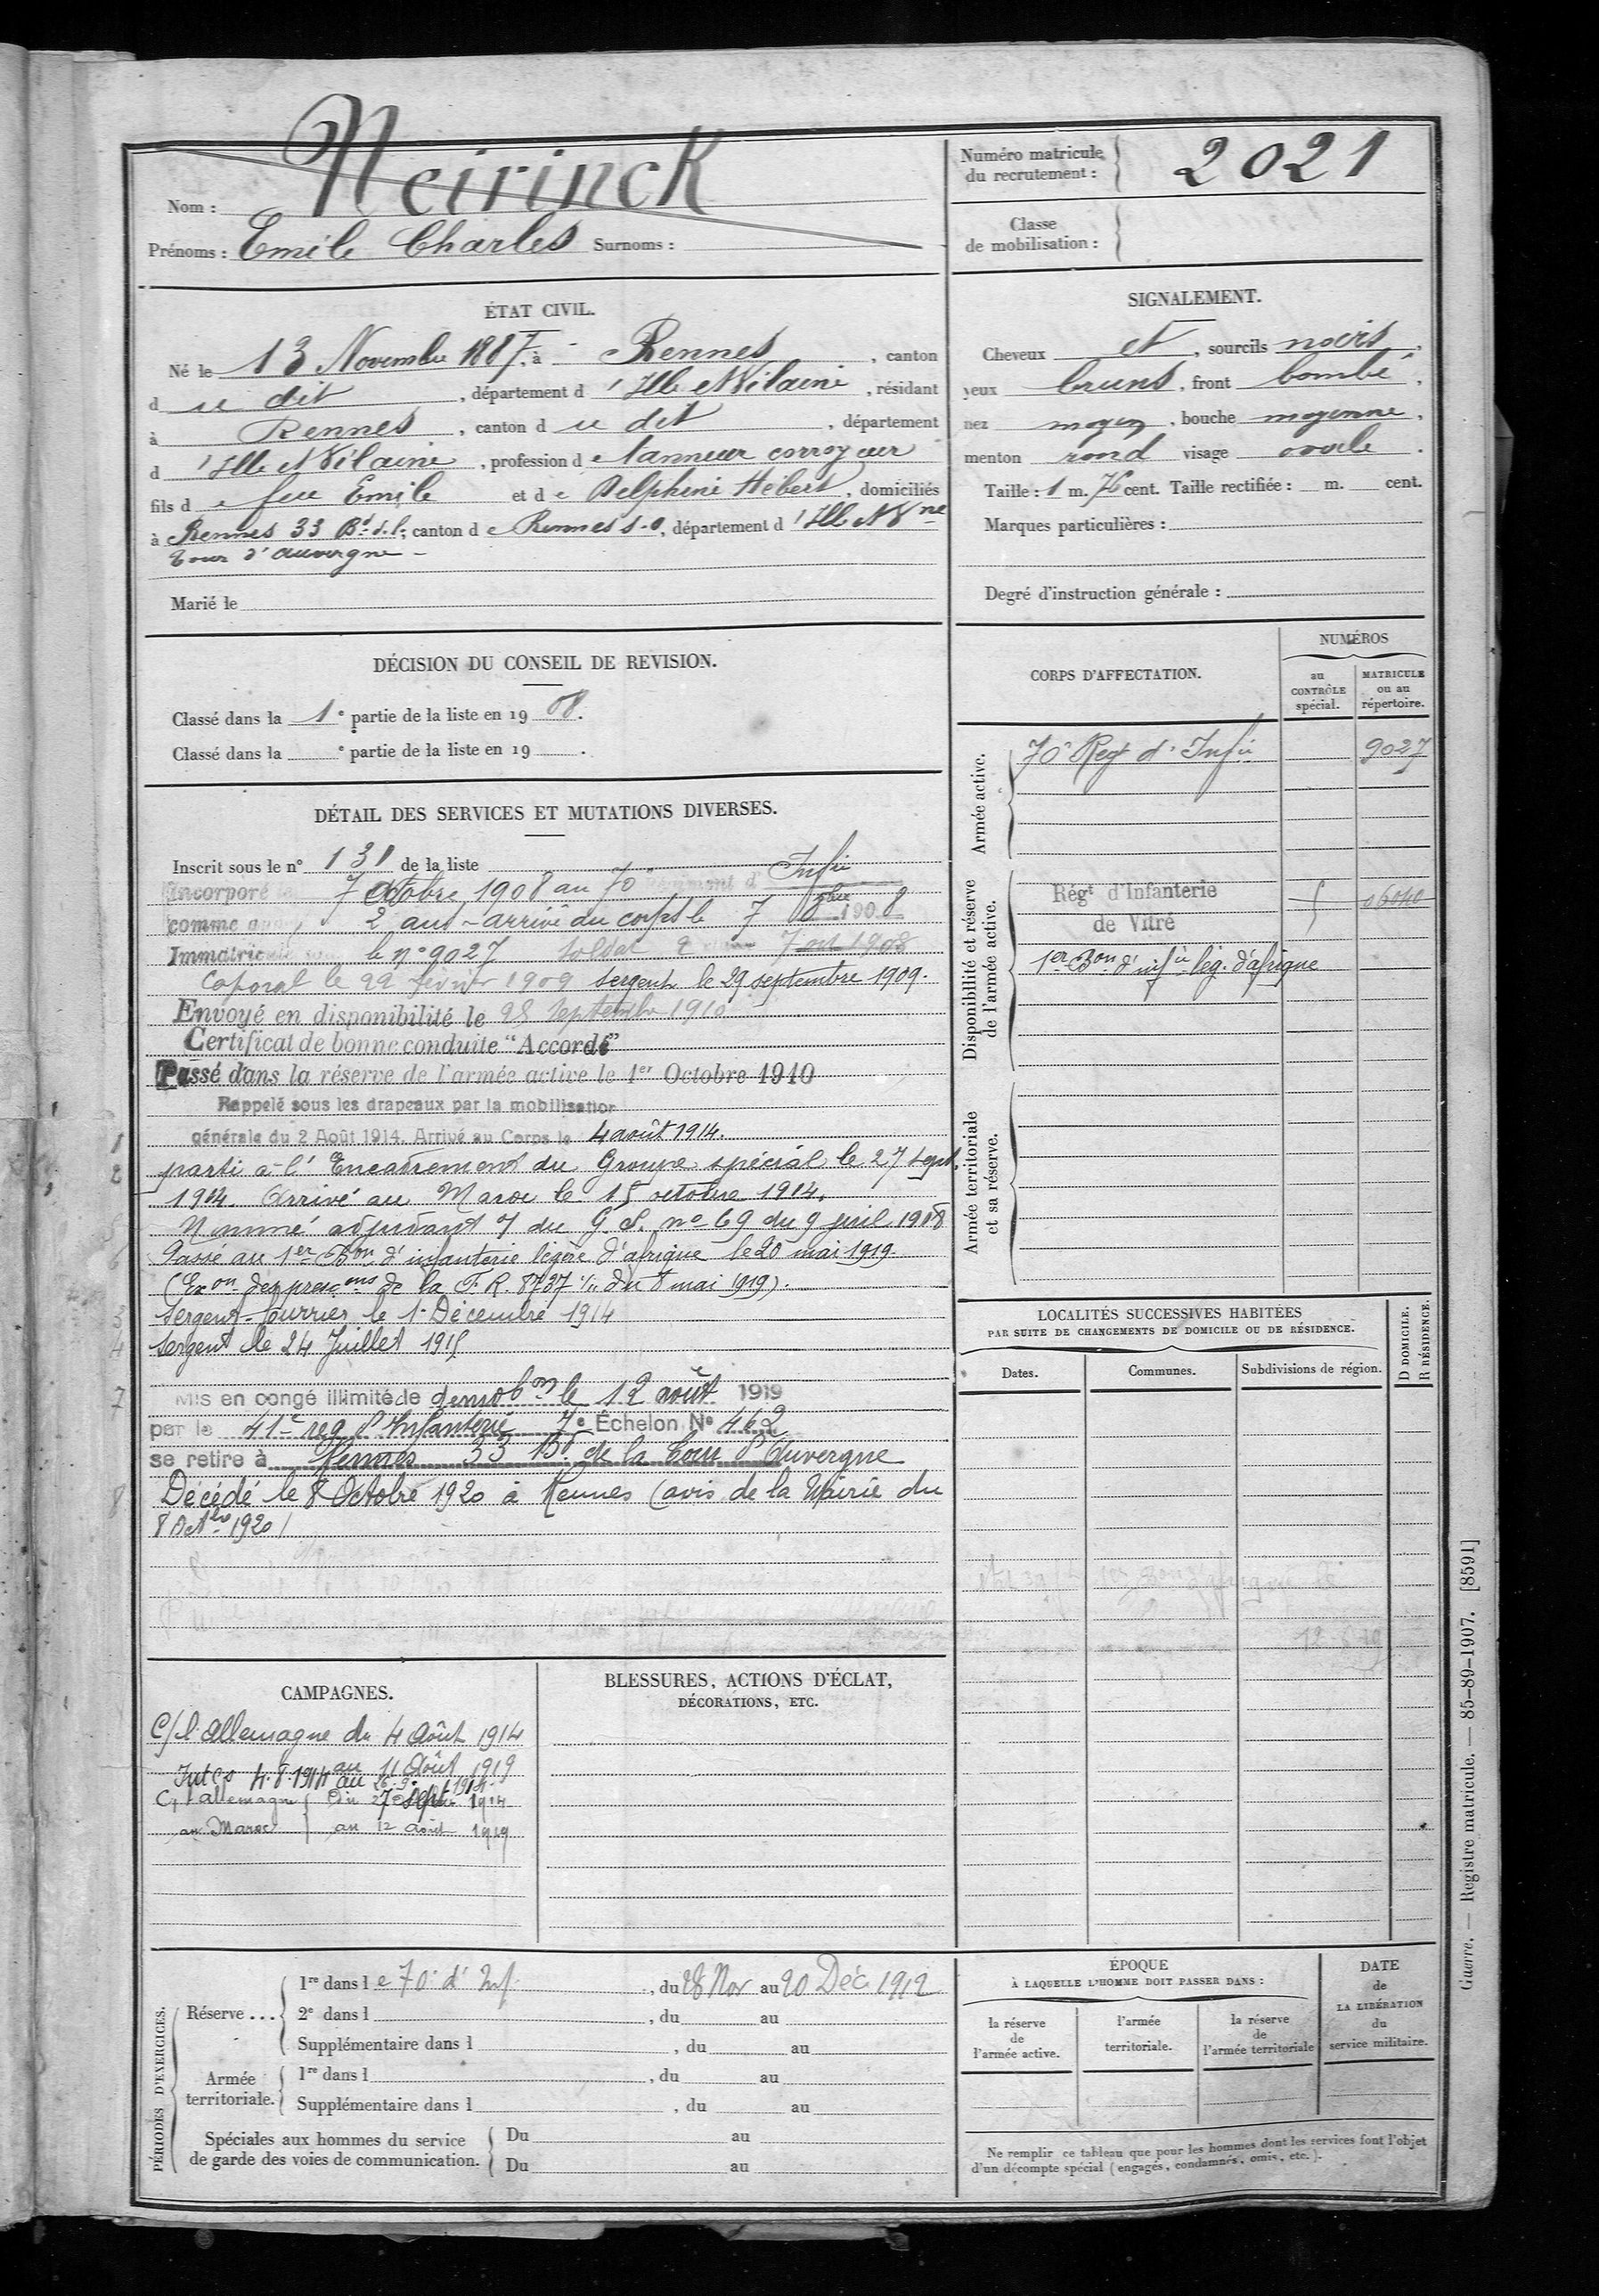 Nom : Neirinck
Prénoms : Emile Charles Surnoms :
Numéro matricule du recrutement : 2021
Classe de mobilisation :
ÉTAT CIVIL.
Né le 13 Novembre 1887, à Rennes, canton
d ce dit, département d'Ille et Vilaine, résidant
à Rennes, canton d ce dit, département
d'Ille et Vilaine, profession de tanneur corroyeur
fils de feu Emile et de Delphine Hébert, domiciliés
à Rennes 33 Bd d. l., canton de Rennes s-o, département d'Ille et Vne
Tour d'auvergne -
Marié le
SIGNALEMENT.
Cheveux et, sourcils noirs,
yeux bruns, front bombé,
nez moyen, bouche moyenne,
menton rond visage ovale.
Taille : 1 m. 76 cent. Taille rectifiée : m. cent.
Marques particulières :
Degré d'instruction générale :
DÉCISION DU CONSEIL DE REVISION.
Classé dans la 1e partie de la liste en 1908.
Classé dans la e partie de la liste en 19 .
DÉTAIL DES SERVICES ET MUTATIONS DIVERSES.
Inscrit sous le n° 131 de la liste
Incorporé 7 Octobre 1908 au 70 Régiment d' Infie
comme 2 ans - arrivé au corps le 7 8bre 1908
Immatriculé le n° 9027 Soldat 2 7 oct 1908
Caporal le 22 février 1909 sergent le 29 septembre 1909.
Envoyé en disponibilité le 28 Septembre 1910
Certificat de bonne conduite "Accordé"
Passé dans la réserve de l'armée active le 1er Octobre 1910
Rappelé sous les drapeaux par la mobilisation
1 générale du 2 Août 1914. Arrivé au Corps le 4 août 1914.
2 parti à l'Encadrement du Groupe spécial le 27 sept.
1914. Arrivé au Maroc le 15 octobre 1914.
5 Nommé adjudant du G S. n° 69 du 9 1918
6 Passé au 1er Bon d'infanterie légère d'afrique le 20 mai 1919.
(Exon des presons de la F. R. 8737 du 8 mai 1919).
3 Sergent-fourrier le 1 Décembre 1914
4 Sergent le 24 Juillet 1915
7 Mis en congé illimité de démobon le 12 août 1919
par le 41e reg d'Infanterie 7e Échelon N° 462
se retire à Rennes 33 Bd de la Tour d'Auvergne
8 Décédé le 8 Octobre 1920 à Rennes (avis de la Mairie du
8 Octbre 1920)
CORPS D'AFFECTATION.
NUMÉROS
au CONTRÔLE spécial.
MATRICULE ou au répertoire.
Armée active.
70e Regt d'Infie 9027
Disponibilité et réserve de l'armée active.
Régt d'Infanterie
de Vitré 06040
1er Bon d'infie lég. d'afrique
Armée territoriale et sa réserve.
LOCALITÉS SUCCESSIVES HABITÉES
PAR SUITE DE CHANGEMENTS DE DOMICILE OU DE RÉSIDENCE.
D DOMICILE.
R RÉSIDENCE.
Dates.
Communes.
Subdivisions de région.
CAMPAGNES.
C/ l'allemagne du 4 Août 1914
au 11 Août 1919
Intes 4.8.1914 au 26.9.1914
C/ l'allemagne du 27 sept 1914
au Maroc au 12 août 1919
BLESSURES, ACTIONS D'ÉCLAT,
DÉCORATIONS, ETC.
PÉRIODES D'EXERCICES.
Réserve ...
1re dans le 70e d'Inf., du 28 Nov au 20 Déc 1912
2e dans l , du au
Supplémentaire dans l , du au
Armée territoriale.
1re dans l , du au
Supplémentaire dans l , du au
Spéciales aux hommes du service
de garde des voies de communication.
Du au
Du au
ÉPOQUE
À LAQUELLE L'HOMME DOIT PASSER DANS :
la réserve de l'armée active.
l'armée territoriale.
la réserve de l'armée territoriale
DATE
de
LA LIBÉRATION
du
service militaire.
Ne remplir ce tableau que pour les hommes dont les services font l'objet
d'un décompte spécial (engagés, condamnés, omis, etc.).
Guerre. — Registre matricule. — 85-89-1907. [8591]